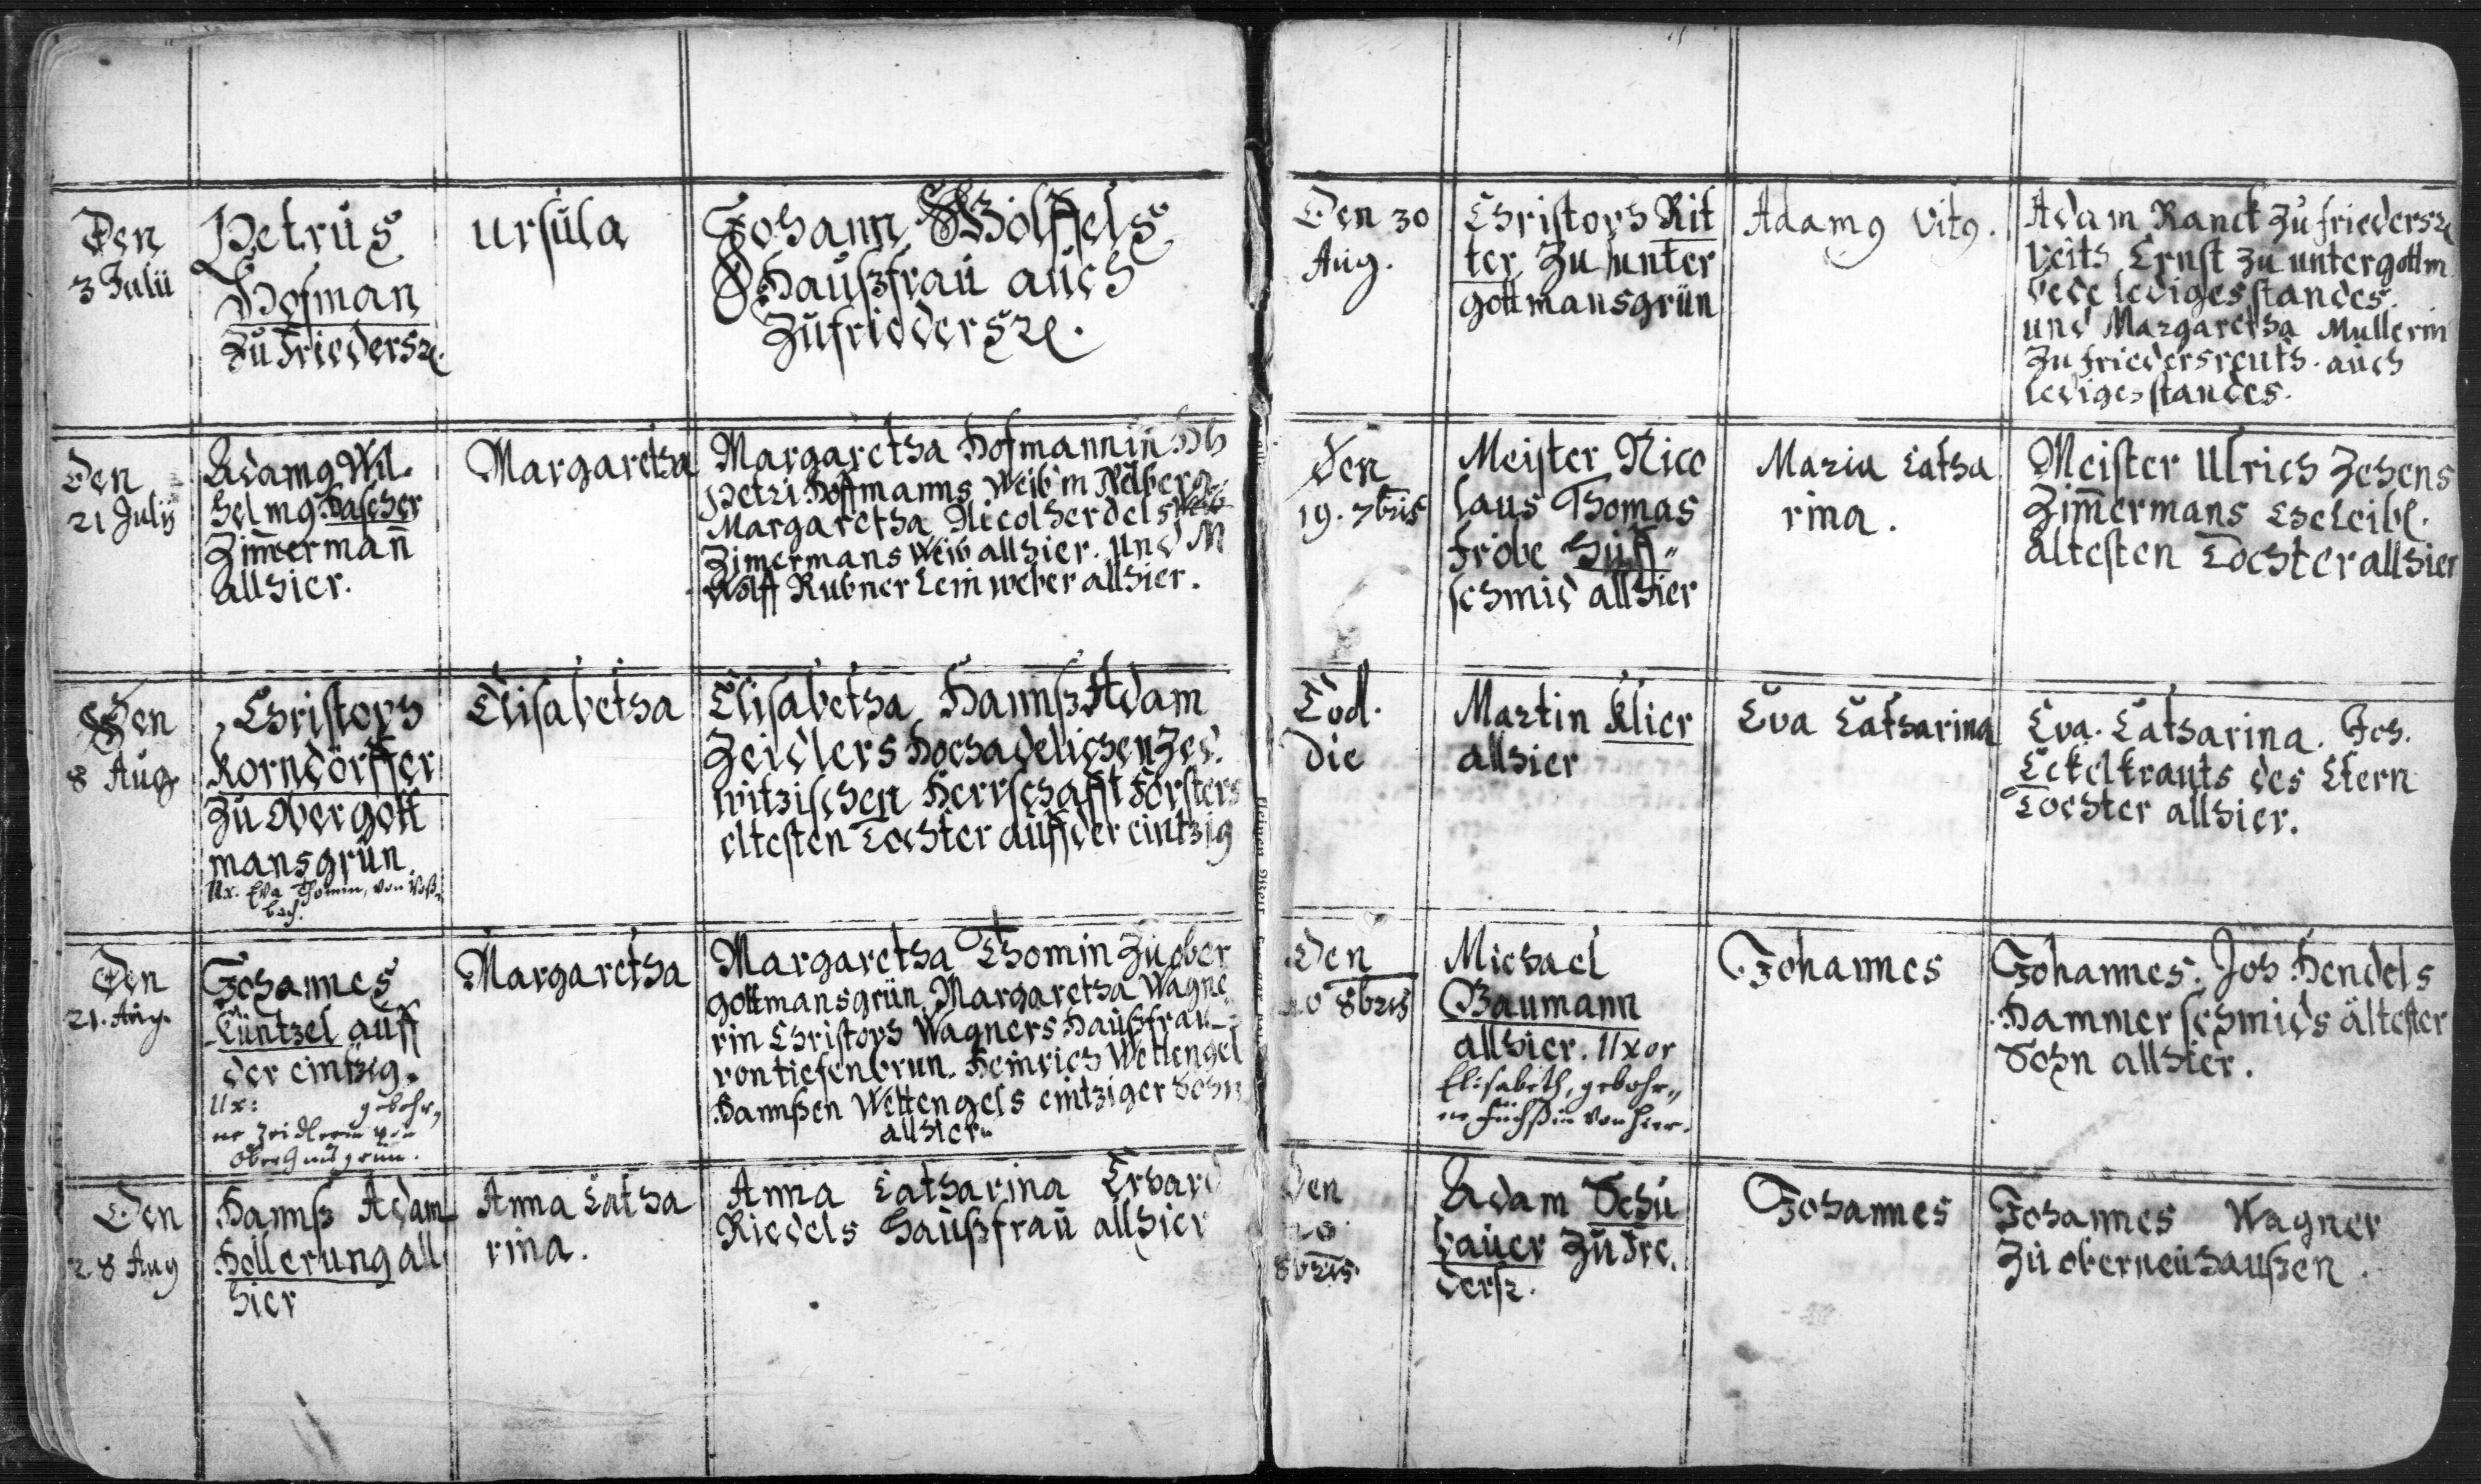 Den
3 Julii
Petrus
Hofman
Zu Friedersr.
Ursula
Johann Wölffels
Haußfrau auch
Zu friedersr.
Den
21 Julij
Adamg Wil.
helmg Hascher
Zimmerman̄
allhier.
Margaretha
Margaretha Hofmannin
Petri Hoffmanns Weib
Margaretha Nicol Herdels
Zimermans Weib allhier. Und M
Wolff Rubner Leinweber allhier.
Den
8 Aug.
Christoph
Korndörffer
Zu Obergott
mansgrün.
Ux. Eva Thomin, von
bach.
Elisabetha
Elisabetha Hannß Adam
Zeidlers Hochadelichen Zed.
witzischen Herrschafft Försters
eltesten Tochter auff der eintzig
Den
21. Aug.
Johannes
Küntzel auff
der eintzig.
Ux: gebohr„
ne Zeidlerin von
Margaretha
Margaretha Thomin Zu ober
gottmansgrün, Margaretha Wagne
rin Christoph Wagners Haußfrau
von tiefenbrun. Heinrich Wettengel
Hannßen Wettengels eintziger Sohn
allhier.
Den
28 Aug
Hannß Adam
Hollerung all
hier
Anna Catha
rina.
Anna Catharina Erhard
Riedels Haußfrau allhier
Den 30
Aug.
Christoph Rit
ter Zu unter
gottmansgrün
Adamg Vitg.
Adam Ranck Zu friedersr.
Veith Ernst Zu untergottm
bede lediges standes.
und Margaretha Mullerin
Zu friedersreuth. auch
lediges standes.
Den
19. 7bris
Meister Nico
laus Thomas
Fröbe Huff„
schmid allhier
Maria Catha
rina.
Meister Ulrich Zehens
Zimmermans eheleibl.
ältesten Tochter allhier
Eod.
die
Martin Klier
allhier
Eva Catharina
Eva. Catharina. Joh.
Eckelkrauts des Eltern
Tochter allhier.
Den
10 8bris
Michael
Baumann
allhier. Uxor
Elisabeth, gebohr„
ne Füchßin von hier.
Johannes
Johannes. Joh Hendels
Hammerschmids ältester
Sohn allhier.
Den
8bris.
Adam Schu
bauer Zu Fre.
dersr.
Johannes
Johannes Wagner
Zu oberneuhaußen.